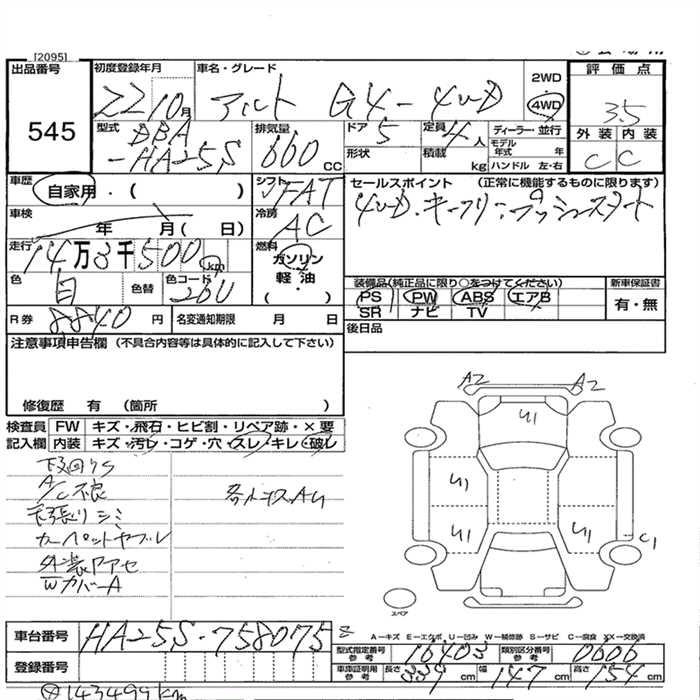 [2095]
出品番号 初度登録年月 車名・グレード 2WD 評価点
545 22 10月 アルト G4-4WD 4WD 3.5
型式 DBA-HA25S 排気量 660 CC ドア 5 定員 4人 ディーラー・並行 外装 内装
形状 積載 kg モデル年式 年 C C
ハンドル 左・右
車歴 自家用・( ) シフト FAT セールスポイント (正常に機能するものに限ります)
車検 年 月( 日) 冷房 AC 4WD・キーフリー・プッシュスタート
走行 14万3千500 km 燃料 ガソリン
軽・油
・( )
色 白 色替 色コード 26U
装備品(純正品に限り○をつけてください) 新車保証書
PS PW ABS エアB 有・無
SR ナビ TV
R券 8840 円 名変通知期限 月 日 後日品
注意事項申告欄 (不具合内容等は具体的に記入して下さい)
修復歴 有 (箇所 )
検査員 FW キズ・飛石・ヒビ割・リペア跡・×要
記入欄 内装 キズ・汚レ・コゲ・穴・スレ・キレ・破レ
下回りS
A/C不良
天張りシミ
カーペットヤブレ
外装アセ
Wカバー A
A2 A2
U1
U1
U1 U1
C1
スペア
A-キズ E-エクボ U-凹み W-補修跡 S-サビ C-腐食 XX-交換済
車台番号 HA25S-758075
登録番号
型式指定番号 参考 16403 類別区分番号 参考 0606
車庫証明用 参考 長さ 339 cm 幅 147 cm 高さ 154 cm
143499km